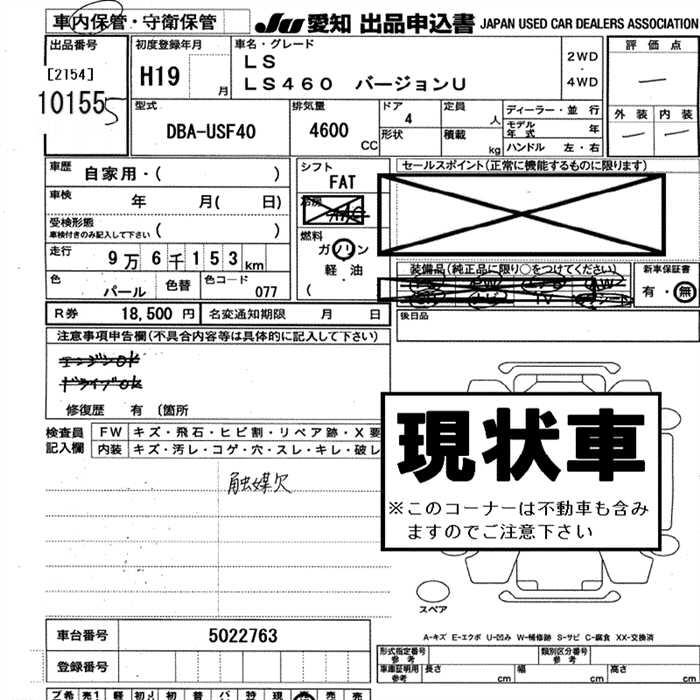 車内保管・守衛保管
JU 愛知 出品申込書 JAPAN USED CAR DEALERS ASSOCIATION
出品番号
[2154]
10155
5
初度登録年月
H19
月
車名・グレード
LS
LS460 バージョンU
2WD
・
4WD
評価点
外装
内装
型式
DBA-USF40
排気量
4600
CC
ドア
4
形状
定員
人
積載
kg
ディーラー・並行
モデル年式
年
ハンドル 左・右
車歴
自家用・( )
車検
年 月( 日)
受検形態
車検付きのみ記入して下さい ( )
走行
9万6千153km
色
パール
色替
色コード
077
シフト
FAT
冷房
AAC
燃料
ガソリン
軽油
(
セールスポイント(正常に機能するものに限ります)
装備品(純正品に限り○をつけてください)
新車保証書
有・無
TV
後日品
R券
18,500 円
名変通知期限 月 日
注意事項申告欄(不具合内容等は具体的に記入して下さい)
エンジンOK
ドライブOK
修復歴 有 (箇所
現状車
※このコーナーは不動車も含み
ますのでご注意下さい
検査員
記入欄
FW
キズ・飛石・ヒビ割・リペア跡・X要
内装
キズ・汚レ・コゲ・穴・スレ・キレ・破レ
触媒欠
スペア
A-キズ E-エクボ U-凹み W-補修跡 S-サビ C-腐食 XX-交換済
車台番号
5022763
登録番号
形式指定番号
参考
類別区分番号
参考
車庫証明用
参考
長さ
cm
幅
cm
高さ
cm